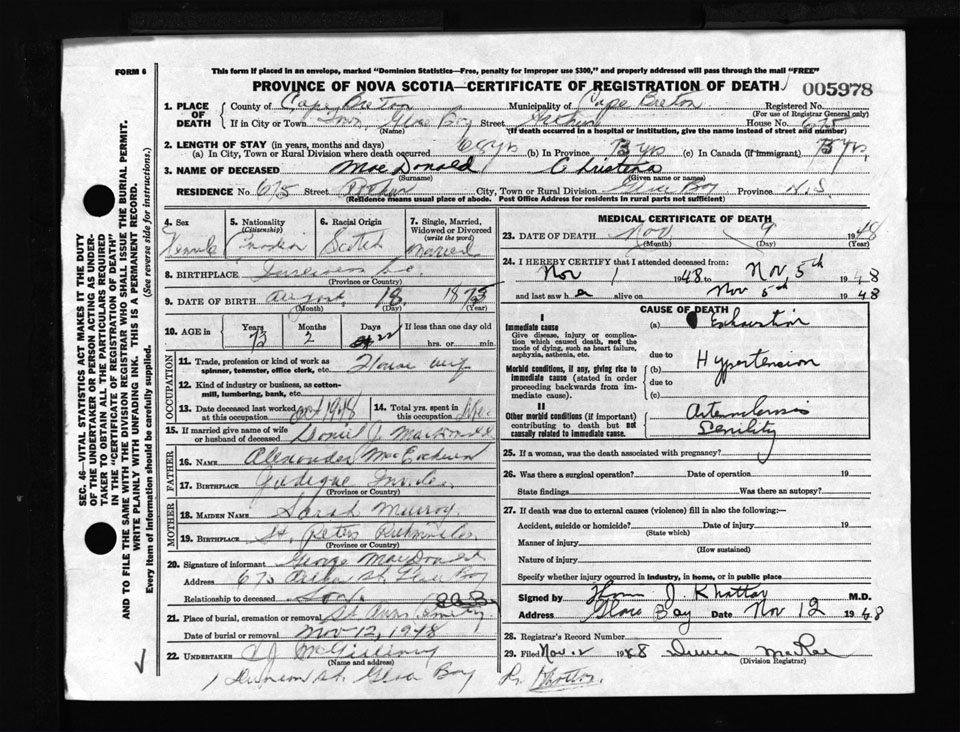 FORM 6
This form if placed in an envelope, marked "Dominion Statistics—Free, penalty for improper use $300," and properly addressed will pass through the mail "FREE"
PROVINCE OF NOVA SCOTIA—CERTIFICATE OF REGISTRATION OF DEATH
005978
1. PLACE OF DEATH
County of Cape Breton Municipality of Cape Breton Registered No.
(For use of Registrar General only)
If in City or Town Town Glace Bay Street House No. 675
(Name) (If death occurred in a hospital or institution, give the name instead of street and number)
2. LENGTH OF STAY (in years, months and days)
(a) In City, Town or Rural Division where death occurred 68 yrs (b) In Province 73 yrs (c) In Canada (if immigrant) 73 yrs.
3. NAME OF DECEASED MacDonald Christena
(Surname) (Given name or names)
RESIDENCE No. 675 Street City, Town or Rural Division Glace Bay Province N.S
(Residence means usual place of abode. Post Office Address for residents in rural parts not sufficient)
4. Sex Female
5. Nationality (Citizenship) Canadian
6. Racial Origin Scotch
7. Single, Married, Widowed or Divorced (write the word) Married
8. BIRTHPLACE Inverness Co.
(Province or Country)
9. DATE OF BIRTH August 18 1875
(Month) (Day) (Year)
10. AGE in Years Months Days If less than one day old
73 2 22 hrs. or min.
OCCUPATION
11. Trade, profession or kind of work as spinner, teamster, office clerk, etc. House wife
12. Kind of industry or business, as cotton-mill, lumbering, bank, etc.
13. Date deceased last worked at this occupation 1948
14. Total yrs. spent in this occupation Life
15. If married give name of wife or husband of deceased Daniel J. MacDonald
FATHER
16. NAME Alexander MacEachern
17. BIRTHPLACE Judique
(Province or Country)
MOTHER
18. MAIDEN NAME Sarah Murray
19. BIRTHPLACE St. Peters Richmond Co.
(Province or Country)
20. Signature of informant George MacDonald
Address 675 St. Glace Bay
Relationship to deceased Son
21. Place of burial, cremation or removal St Anns Cemetery
Date of burial or removal Nov 12, 1948
22. UNDERTAKER
(Name and address)
St. Glace Bay
MEDICAL CERTIFICATE OF DEATH
23. DATE OF DEATH Nov 9 1948
(Month) (Day) (Year)
24. I HEREBY CERTIFY that I attended deceased from:
Nov 1 1948 to Nov 5th 1948
and last saw h alive on Nov 5th 1948
CAUSE OF DEATH
I
Immediate cause
Give disease, injury or complication which caused death, not the mode of dying, such as heart failure, asphyxia, asthenia, etc.
(a) Exhaustion
due to
Morbid conditions, if any, giving rise to immediate cause (stated in order proceeding backwards from immediate cause).
(b) Hypertension
due to
(c)
II
Other morbid conditions (if important) contributing to death but not causally related to immediate cause.
Senility
25. If a woman, was the death associated with pregnancy?
26. Was there a surgical operation? Date of operation 19
State findings Was there an autopsy?
27. If death was due to external causes (violence) fill in also the following:—
Accident, suicide or homicide? Date of injury 19
(State which)
Manner of injury
(How sustained)
Nature of injury
Specify whether injury occurred in industry, in home, or in public place
Signed by J Khattar M.D.
Address Glace Bay Date Nov 12 1948
28. Registrar's Record Number
29. Filed Nov. 12 1948 Duncan MacRae
(Division Registrar)
Dr. Khattar.
SEC. 46—VITAL STATISTICS ACT MAKES IT THE DUTY
OF THE UNDERTAKER OR PERSON ACTING AS UNDER-
TAKER TO OBTAIN ALL THE PARTICULARS REQUIRED
IN THE "CERTIFICATE OF REGISTRATION OF DEATH"
AND TO FILE THE SAME WITH THE DIVISION REGISTRAR WHO SHALL ISSUE THE BURIAL PERMIT.
WRITE PLAINLY WITH UNFADING INK. THIS IS A PERMANENT RECORD.
Every item of information should be carefully supplied. (See reverse side for instructions.)